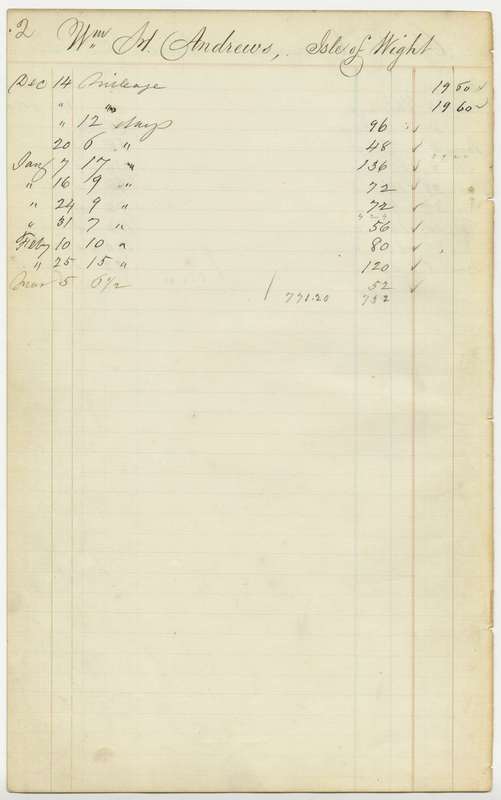 2 Wm H. Andrews, Isle of Wight
Dec 14 Mileage 19 60 ✓
" " 19 60 ✓
" 12 days 96 ✓
20 6 " 48 ✓
Jany 7 17 " 136 ✓
" 16 9 " 72 ✓
" 24 9 " 72 ✓
" 31 7 " 56 ✓
Feby 10 10 " 80 ✓
" 25 15 " 120 ✓
Mar 5 6 1/2 52 ✓
771.20 732